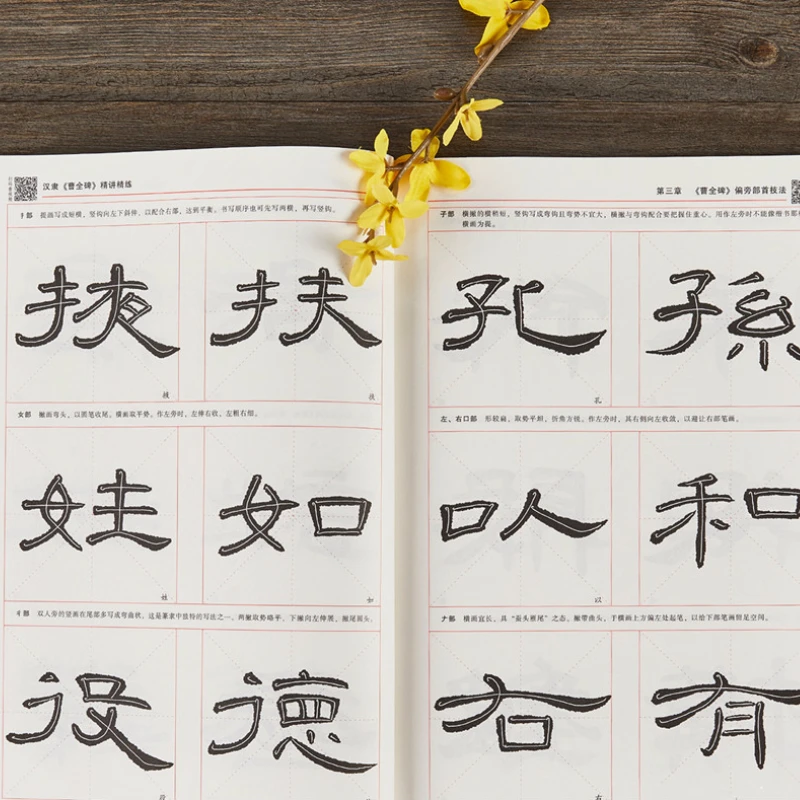 汉隶《曹全碑》精讲精练
扌部 提画写成短横,竖钩向左下斜伸,以配合右部,达到平衡。书写顺序也可先写两横,再写竖钩。
掖 扶
掖 扶
女部 撇画弯头,以圆笔收尾。横画取平势。作左旁时,左伸右收,左粗右细。
姓 如
姓 如
彳部 双人旁的竖画在尾部多写成弯曲状,这是篆隶中独特的写法之一。两撇取势略平,下撇向左伸展,撇尾圆头。
役 德
役
第三章 《曹全碑》偏旁部首技法
子部 横撇的横稍短,竖钩写成弯钩且弯势不宜大,横撇与弯钩配合要把握住重心。用作左旁时不能像楷书那
横画为提。
孔 孫
孔
左、右口部 形较扁,取势平坦,折角方锐。作左旁时,其右侧向左收敛,以避让右部笔画。
以 和
以
𠂇部 横画宜长,具“蚕头雁尾”之态。撇带曲头,于横画上方偏左处起笔,以给下部笔画留足空间。
右 有
右